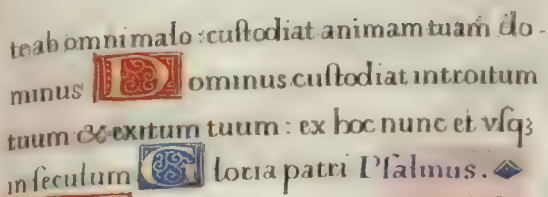 te ab omni malo : cuſtodiat animam tuam̄ do-
minus Dominus cuſtodiat introitum
tuum & exitum tuum : ex hoc nunc et vſqꝫ
in ſeculum Gloria patri Pſalmus.